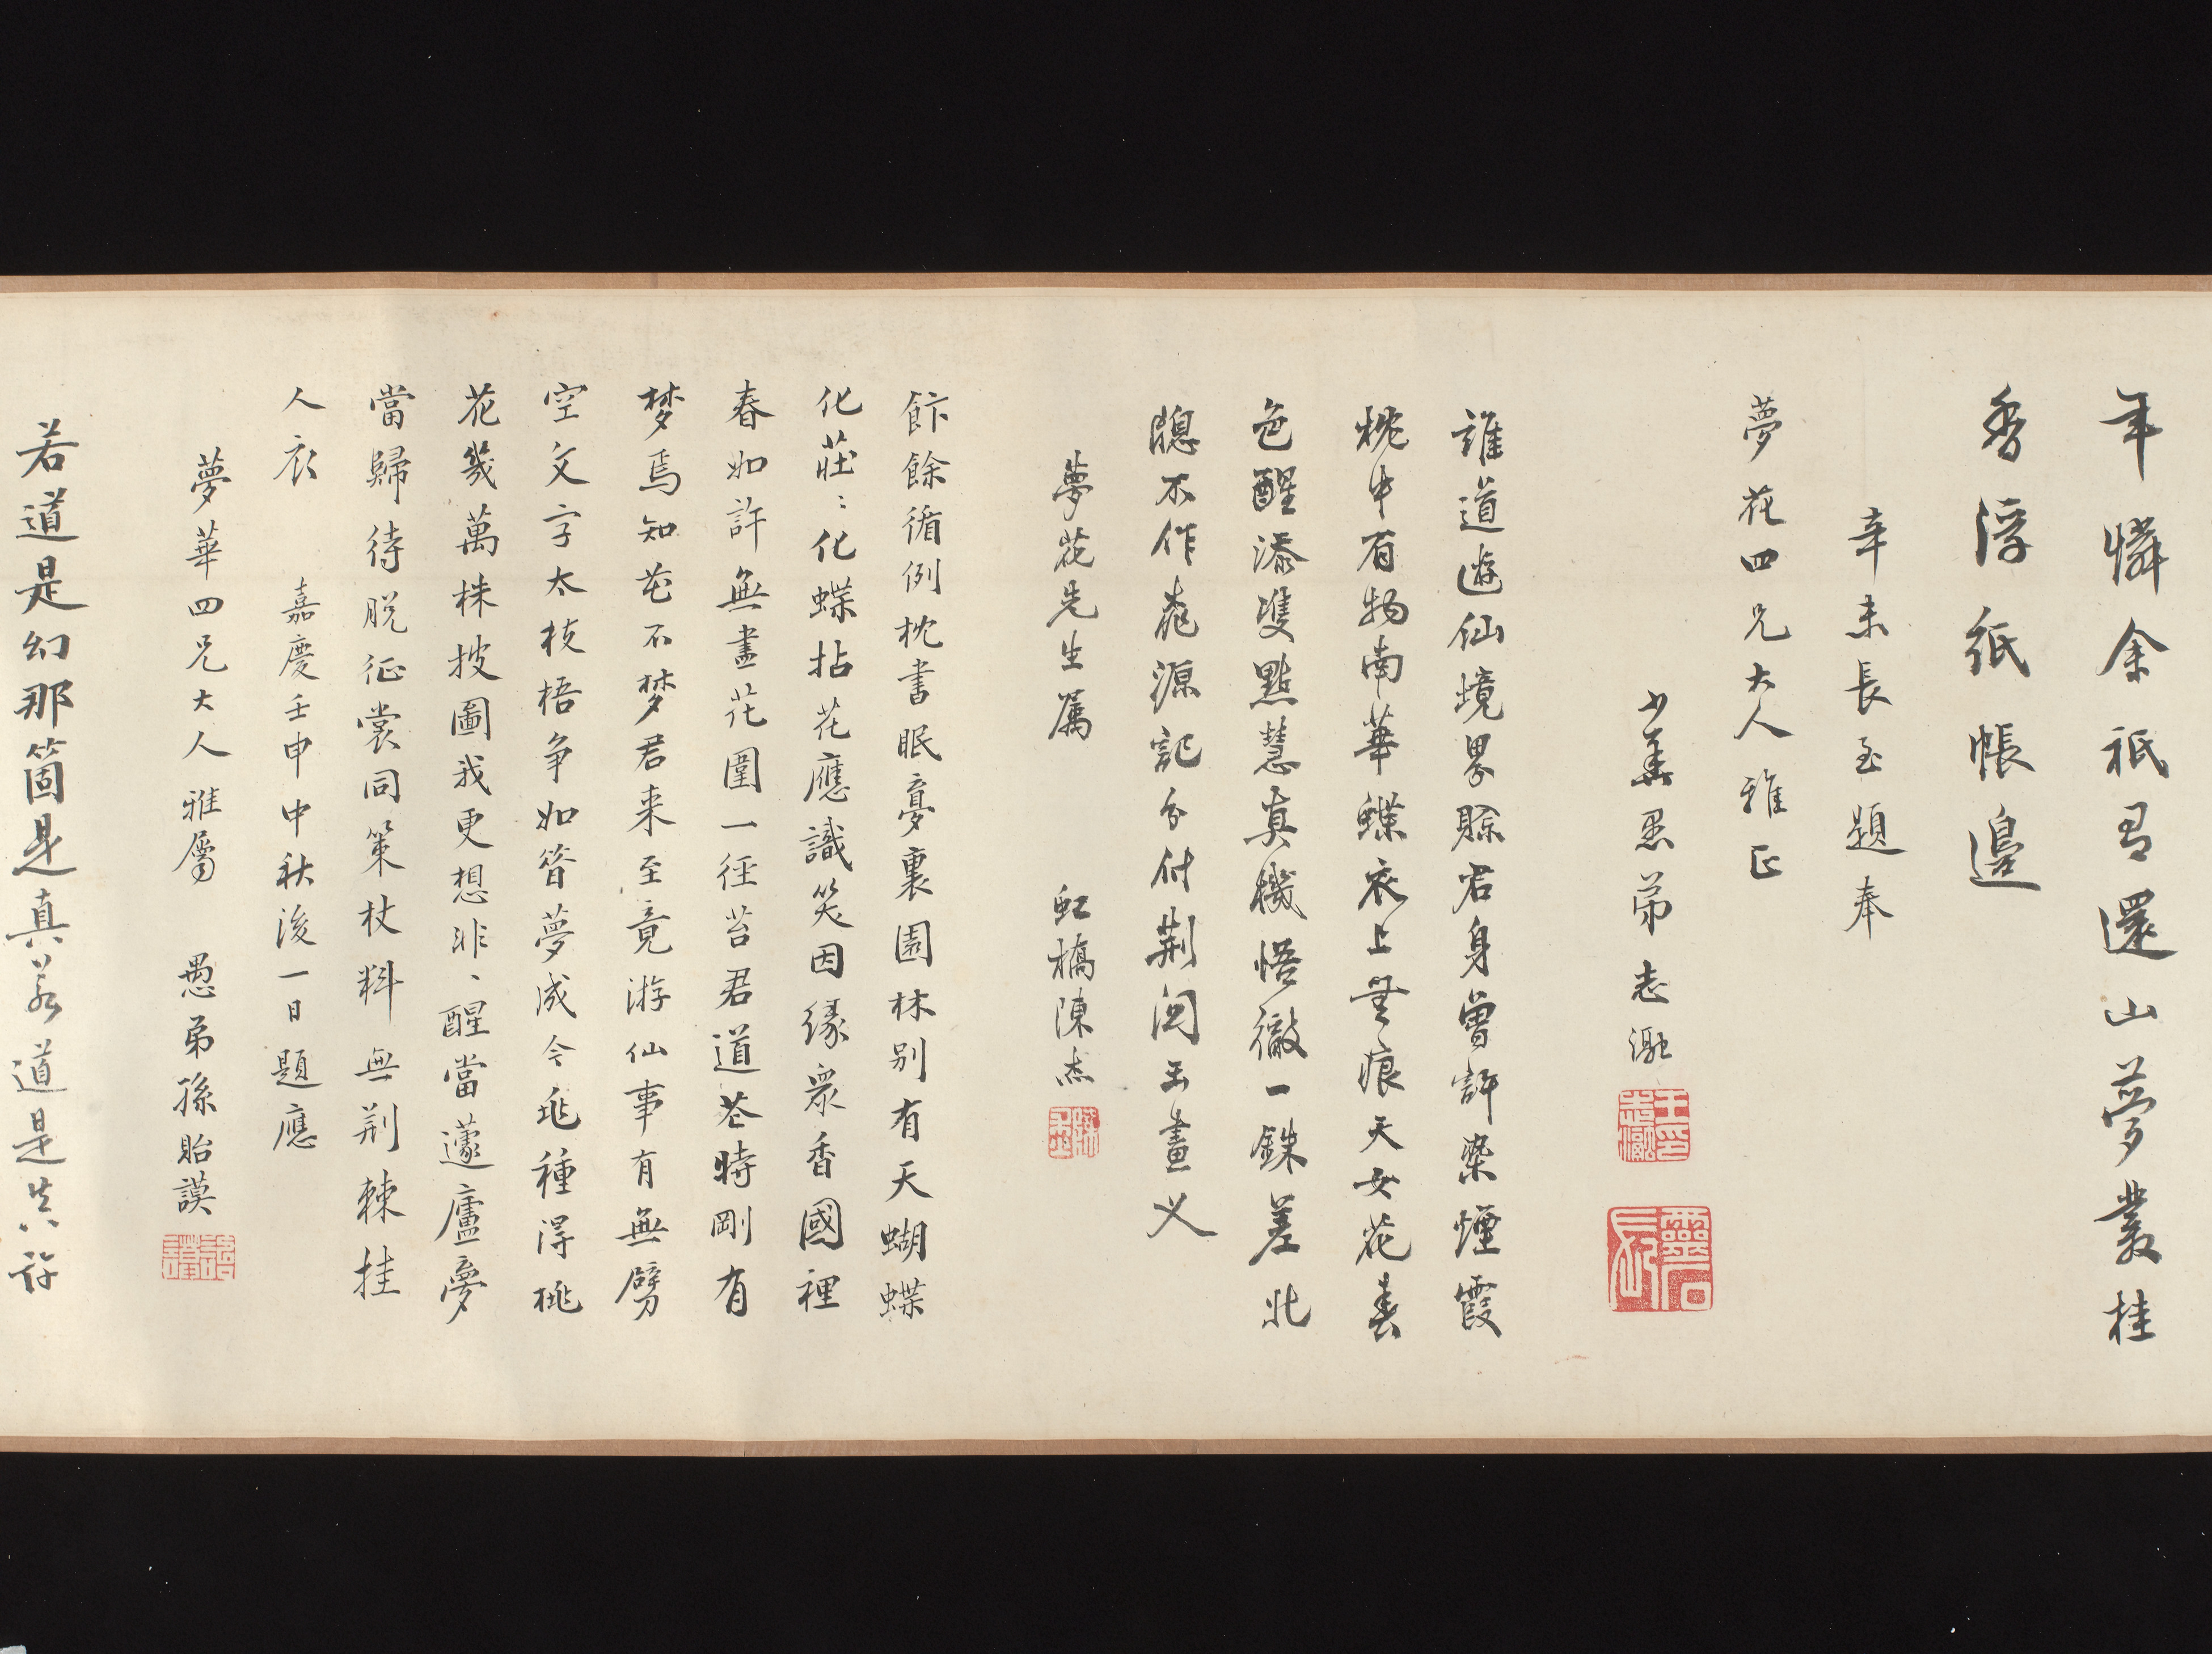 年憐余祇有還山夢叢桂
香浮紙帳邊
辛未長至題奉
夢花四兄大人雅正
少華愚弟志瀜
誰道遊仙境界賒君身曾許染煙霞
枕中有物南華蝶衣上無痕天女花春
色醒添雙點慧真機悟徹一銖差北
牕不作桃源記分付荊關玉畫叉
夢花先生屬
虹橋陳杰
飪餘循例枕書眠夢裏園林別有天蝴蝶
化莊〻化蝶拈花應識笑因緣眾香國裡
春如許無盡花圍一徑苔君道花時剛有
梦焉知花不梦君来至竟游仙事有無劈
空文字太枝梧争如昝夢成令兆種得桃
花幾萬株披圖我更想非〻醒當蘧廬夢
當歸待脱征裳同策杖料無荆棘挂
人衣
嘉慶壬申中秋後一日題應
夢華四兄大人雅屬
愚弟孫貽謨
若道是幻那箇是真若道是真許